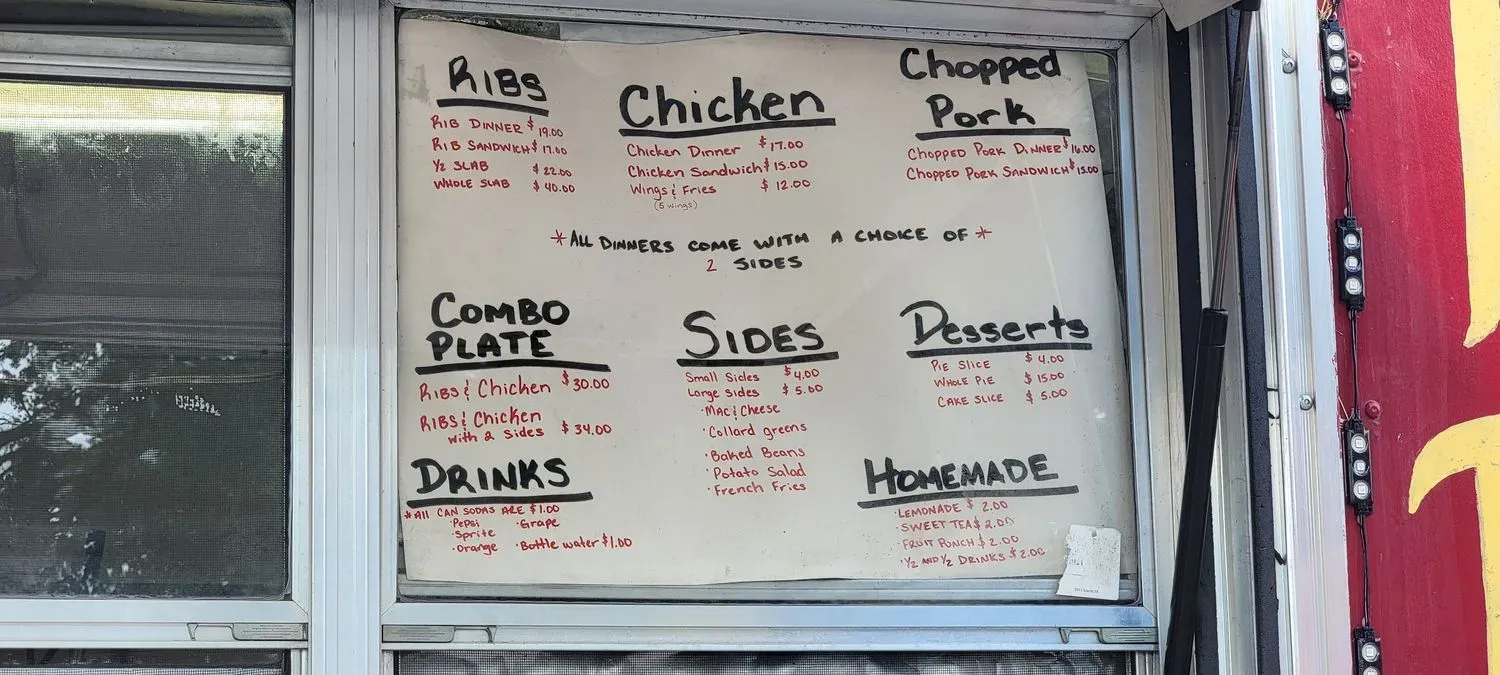 RIBS
RIB DINNER $19.00
RIB SANDWICH $17.00
1/2 SLAB $22.00
WHOLE SLAB $40.00
Chicken
Chicken Dinner $17.00
Chicken Sandwich $15.00
Wings & Fries $12.00
(5 wings)
Chopped
Pork
CHOPPED PORK DINNER $16.00
CHOPPED PORK SANDWICH $15.00
*ALL DINNERS COME WITH A CHOICE OF*
2 SIDES
COMBO
PLATE
RIBS & Chicken $30.00
RIBS & Chicken
with 2 Sides $34.00
SIDES
Small Sides $4.00
Large sides $5.00
·MAC & Cheese
·Collard greens
·Baked Beans
·Potato Salad
·French Fries
Desserts
PIE SLICE $4.00
WHOLE PIE $15.00
CAKE SLICE $5.00
DRINKS
*All CAN SODAS ARE $1.00
·Pepsi ·Grape
·Sprite
·Orange ·Bottle water $1.00
HOMEMADE
·LEMONADE $2.00
·SWEET TEA $2.00
·FRUIT PUNCH $2.00
·1/2 AND 1/2 DRINKS $2.00